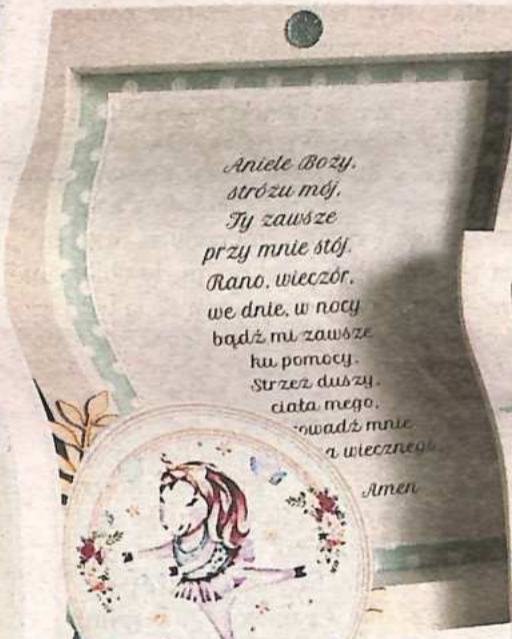 Aniele Boży,
stróżu mój,
Ty zawsze
przy mnie stój.
Rano, wieczór,
we dnie, w nocy
bądź mi zawsze
ku pomocy.
Strzeż duszy,
ciała mego,
mnie
Amen